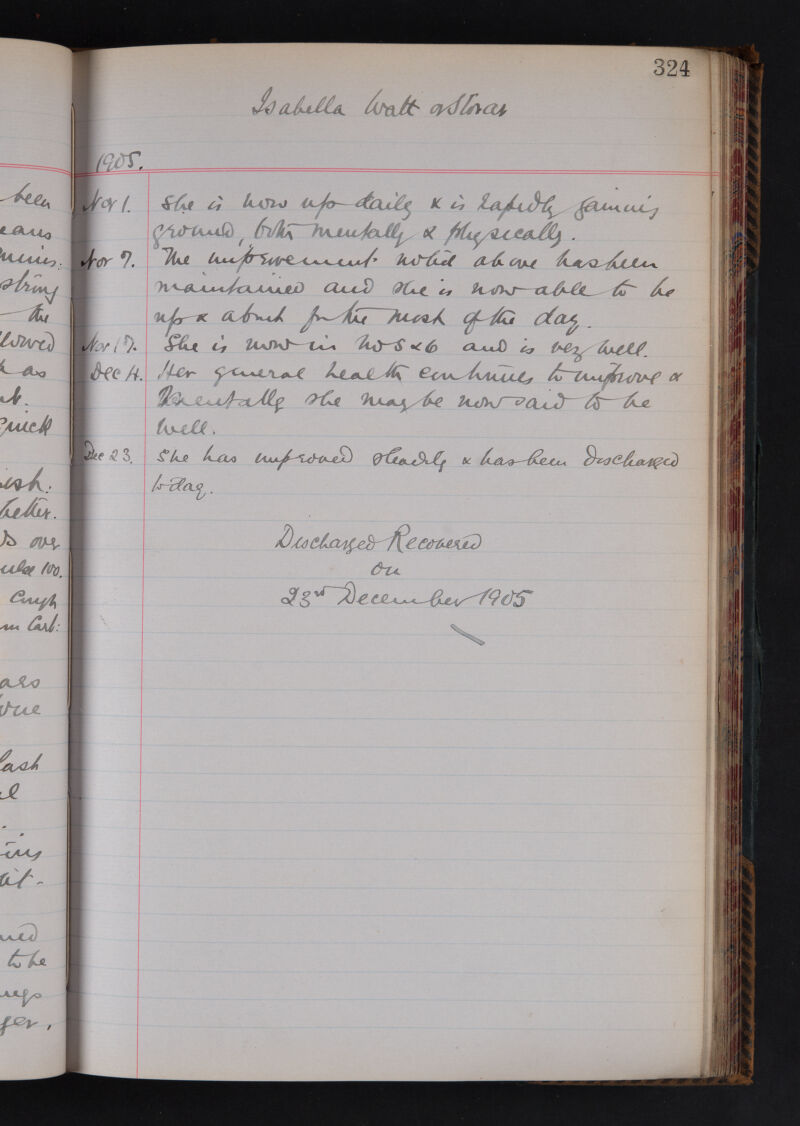 been
eans
string
the
lowed
as
quick
better.
over
100.
Cough
Carb:
lash
to be
324
Isabella Watt or Storar
1905.
Nov 1. She is now up daily & is rapidly gaining
ground, both mentally & physically.
Nov 7. The improvement noted above has been
maintained and she is now able to be
up & about for the most of the day.
Nov 17. She is now in No 5 & 6 and is very well.
Dec 4. Her general health continues to improve &
mentally she may be now said to be
well.
Dec 23. She has improved steadily & has been discharged
to day.
Discharged Recovered
on
23rd December 1905